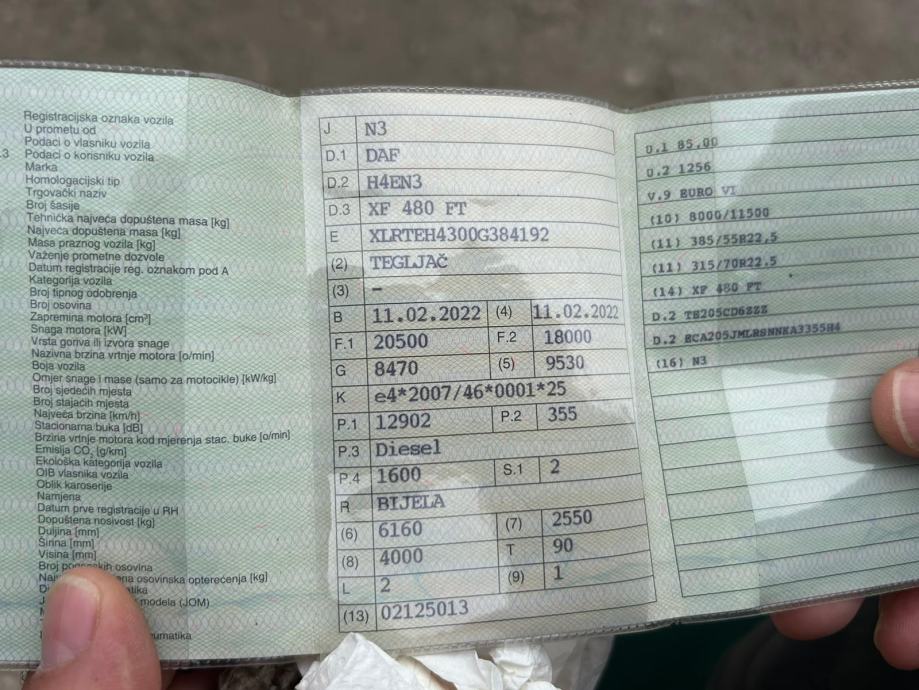 Registracijska oznaka vozila
U prometu od
Podaci o vlasniku vozila
.3 Podaci o korisniku vozila
Marka
Homologacijski tip
Trgovački naziv
Broj šasije
Tehnička najveća dopuštena masa [kg]
Najveća dopuštena masa [kg]
Masa praznog vozila [kg]
Važenje prometne dozvole
Datum registracije reg. oznakom pod A
Kategorija vozila
Broj tipnog odobrenja
Broj osovina
Zapremina motora [cm³]
Snaga motora [kW]
Vrsta goriva ili izvora snage
Nazivna brzina vrtnje motora [o/min]
Boja vozila
Omjer snage i mase (samo za motocikle) [kW/kg]
Broj sjedećih mjesta
Broj stajaćih mjesta
Najveća brzina [km/h]
Stacionarna buka [dB]
Brzina vrtnje motora kod mjerenja stac. buke [o/min]
Emisija CO₂ [g/km]
Ekološka kategorija vozila
OIB vlasnika vozila
Oblik karoserije
Namjena
Datum prve registracije u RH
Dopuštena nosivost [kg]
Duljina [mm]
Širina [mm]
Visina [mm]
Broj
osovina
osovinska opterećenja [kg]
modela (JOM)
J N3
D.1 DAF
D.2 H4EN3
D.3 XF 480 FT
E XLRTEH4300G384192
(2) TEGLJAČ
(3) –
B 11.02.2022 (4) 11.02.2022
F.1 20500 F.2 18000
G 8470 (5) 9530
K e4*2007/46*0001*25
P.1 12902 P.2 355
P.3 Diesel
P.4 1600 S.1 2
R BIJELA
(6) 6160 (7) 2550
(8) 4000 T 90
L 2 (9) 1
(13) 02125013
U.1 85,00
U.2 1256
V.9 EURO VI
(10) 8000/11500
(11) 385/55R22,5
(11) 315/70R22.5
(14) XF 480 FT
D.2 TB205CD6ZZZ
D.2
(16) N3